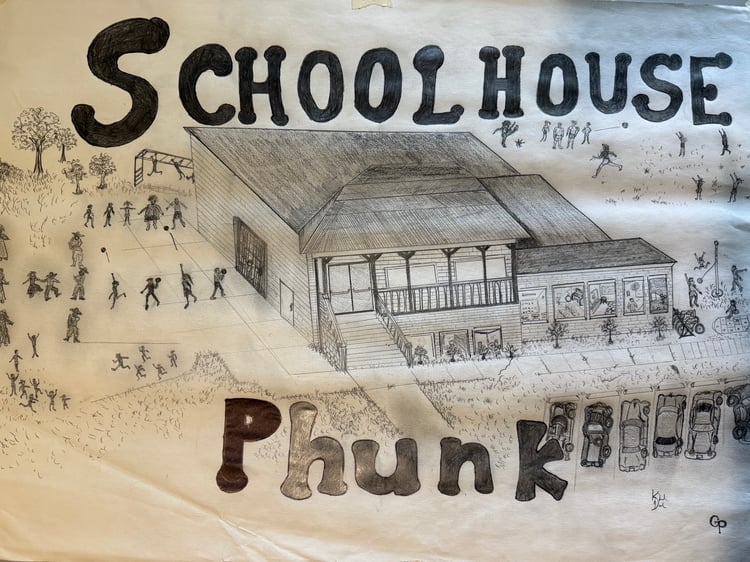 SCHOOLHOUSE
Phunk
GP